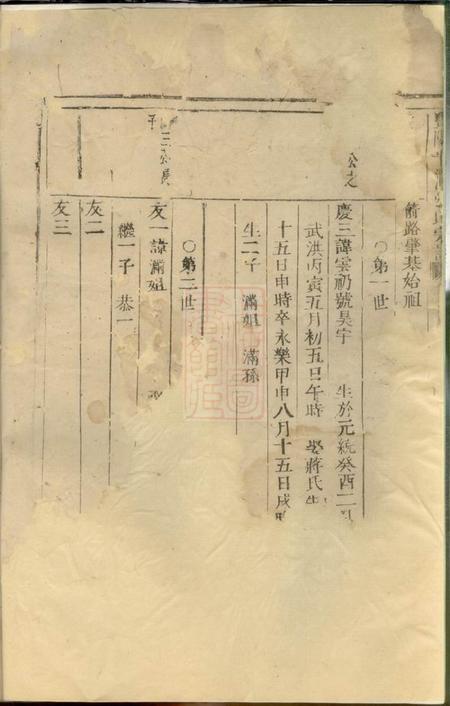 前路肇基始祖
〇第一世
公之
慶三諱雲礽號昊宇 生於元統癸酉二月
武洪丙寅五月初五日午時 娶蔣氏生
十五日申時卒永樂甲申八月十五日戌時
生二子 滿姐 滿孫
〇第二世
三公長
子
友一諱滿姐
繼一子 恭一
友二
友三